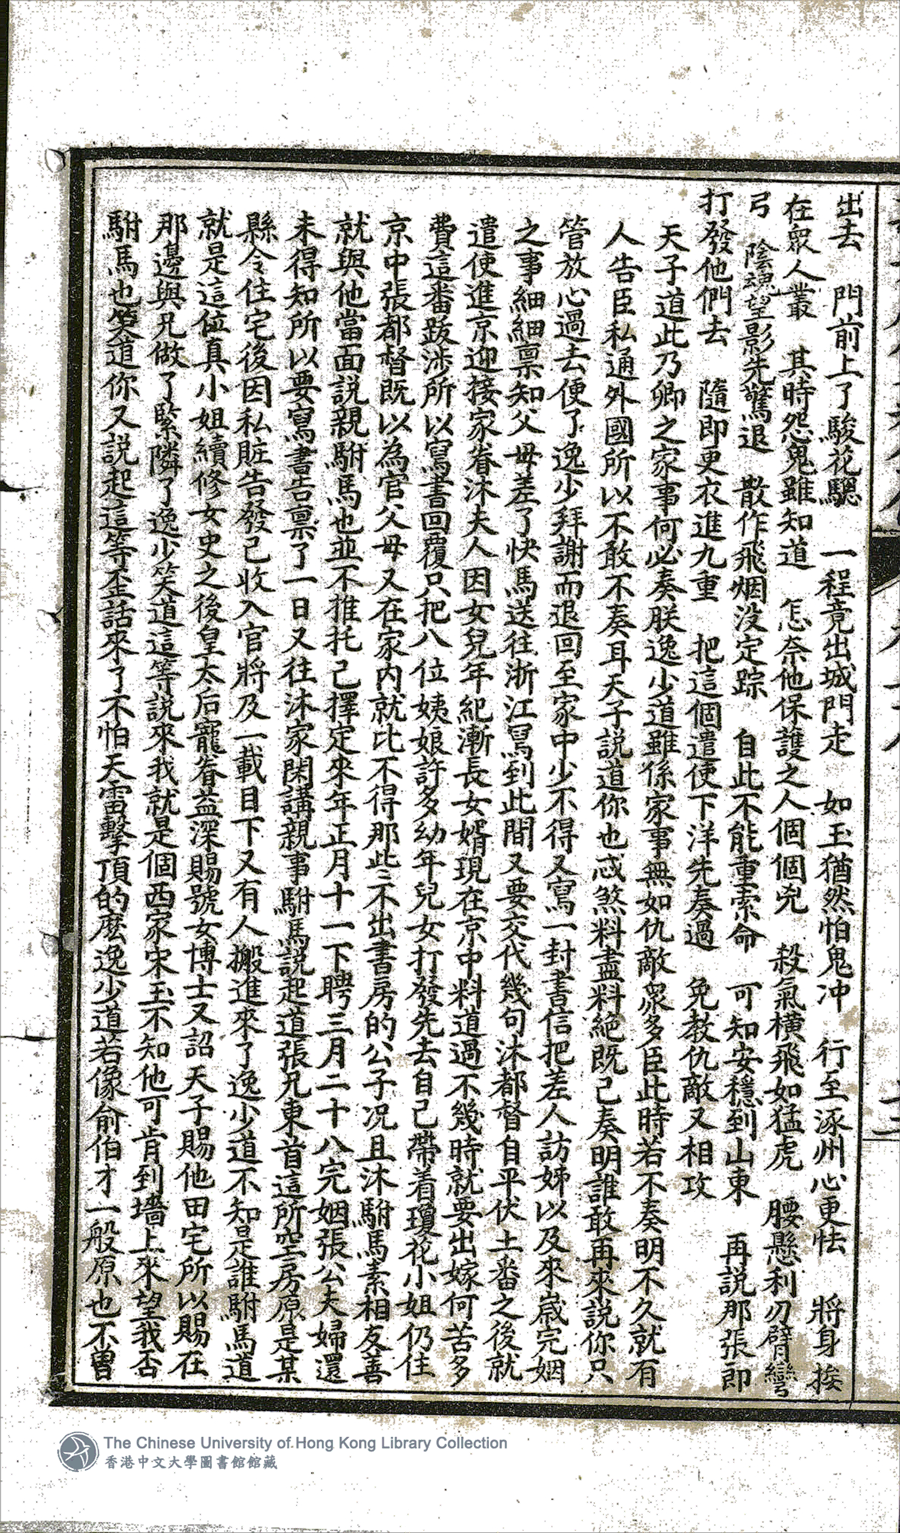 出去　門前上了駿花驄　一程竟出城門走　如玉猶然怕鬼冲　行至涿州心更怯　將身挨
在衆人叢　其時怨鬼雖知道　怎奈他保護之人個個兇　殺氣橫飛如猛虎　腰懸利刃臂彎
弓　陰魂望影先驚退　散作飛烟没定踪　自此不能重索命　可知安穩到山東　再説那張郎
打發他們去　隨即更衣進九重　把這個遣使下洋先奏過　免教仇敵又相攻
天子道此乃卿之家事何必奏朕逸少道雖係家事無如仇敵衆多臣此時若不奏明不久就有
人告臣私通外國所以不敢不奏耳天子説道你也忒煞料盡料絕既已奏明誰敢再來説你只
管放心過去便了逸少拜謝而退回至家中少不得又寫一封書信把差人訪姊以及來歲完姻
之事細細禀知父母差了快馬送往浙江冩到此間又要交代幾句沐都督自平伏土番之後就
遣使進京迎接家眷沐夫人因女兒年紀漸長女婿現在京中料道過不幾時就要出嫁何苦多
費這番跋涉所以寫書回覆只把八位姨娘許多幼年兒女打發先去自己帶着瓊花小姐仍住
京中張都督既以為官父母又在家内就比不得那些不出書房的公子况且沐駙馬素相友善
就與他當面説親駙馬也並不推托已擇定來年正月十一下聘三月二十八完姻張公夫婦還
未得知所以要寫書告禀了一日又往沐家閑講親事駙馬説起道張兄東首這所空房原是某
縣令住宅後因私賍告發已收入官將及一載目下又有人搬進來了逸少道不知是誰駙馬道
就是這位真小姐續修女史之後皇太后寵眷益深賜號女博士又詔天子賜他田宅所以賜在
那邊與兄做了緊隣了逸少笑道這等説來我就是個西家宋玉不知他可肯到墻上來望我否
駙馬也笑道你又説起這等歪話來了不怕天雷擊頂的麽逸少道若像俞伯才一般原也不曾
The Chinese University of Hong Kong Library Collection
香港中文大學圖書館館藏